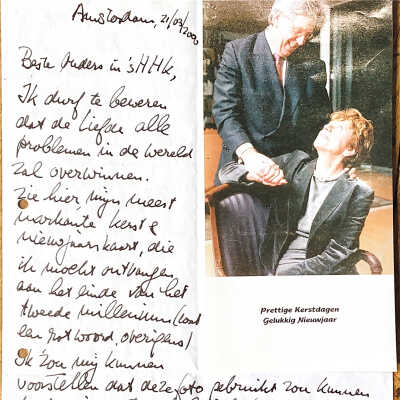 Amsterdam, 21/03/2000
Beste Ouders in 's HHK,
Ik durf te beweren
dat de Liefde alle
problemen in de wereld
zal overwinnen.
Zie hier, mijn meest
markante kerst &
nieuwjaarskaart, die
ik mocht ontvangen
aan het einde van het
tweede millenium (wat
een rotwoord, overigens)
Ik zou mij kunnen
voorstellen dat deze foto gebruikt zou kunnen
Prettige Kerstdagen
Gelukkig Nieuwjaar